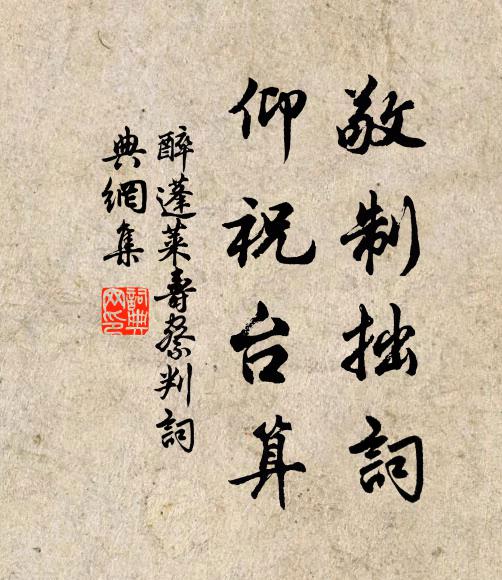 敬制拙詞
仰祝台算
醉蓬萊壽蔡判詞
典網集
詞典網印